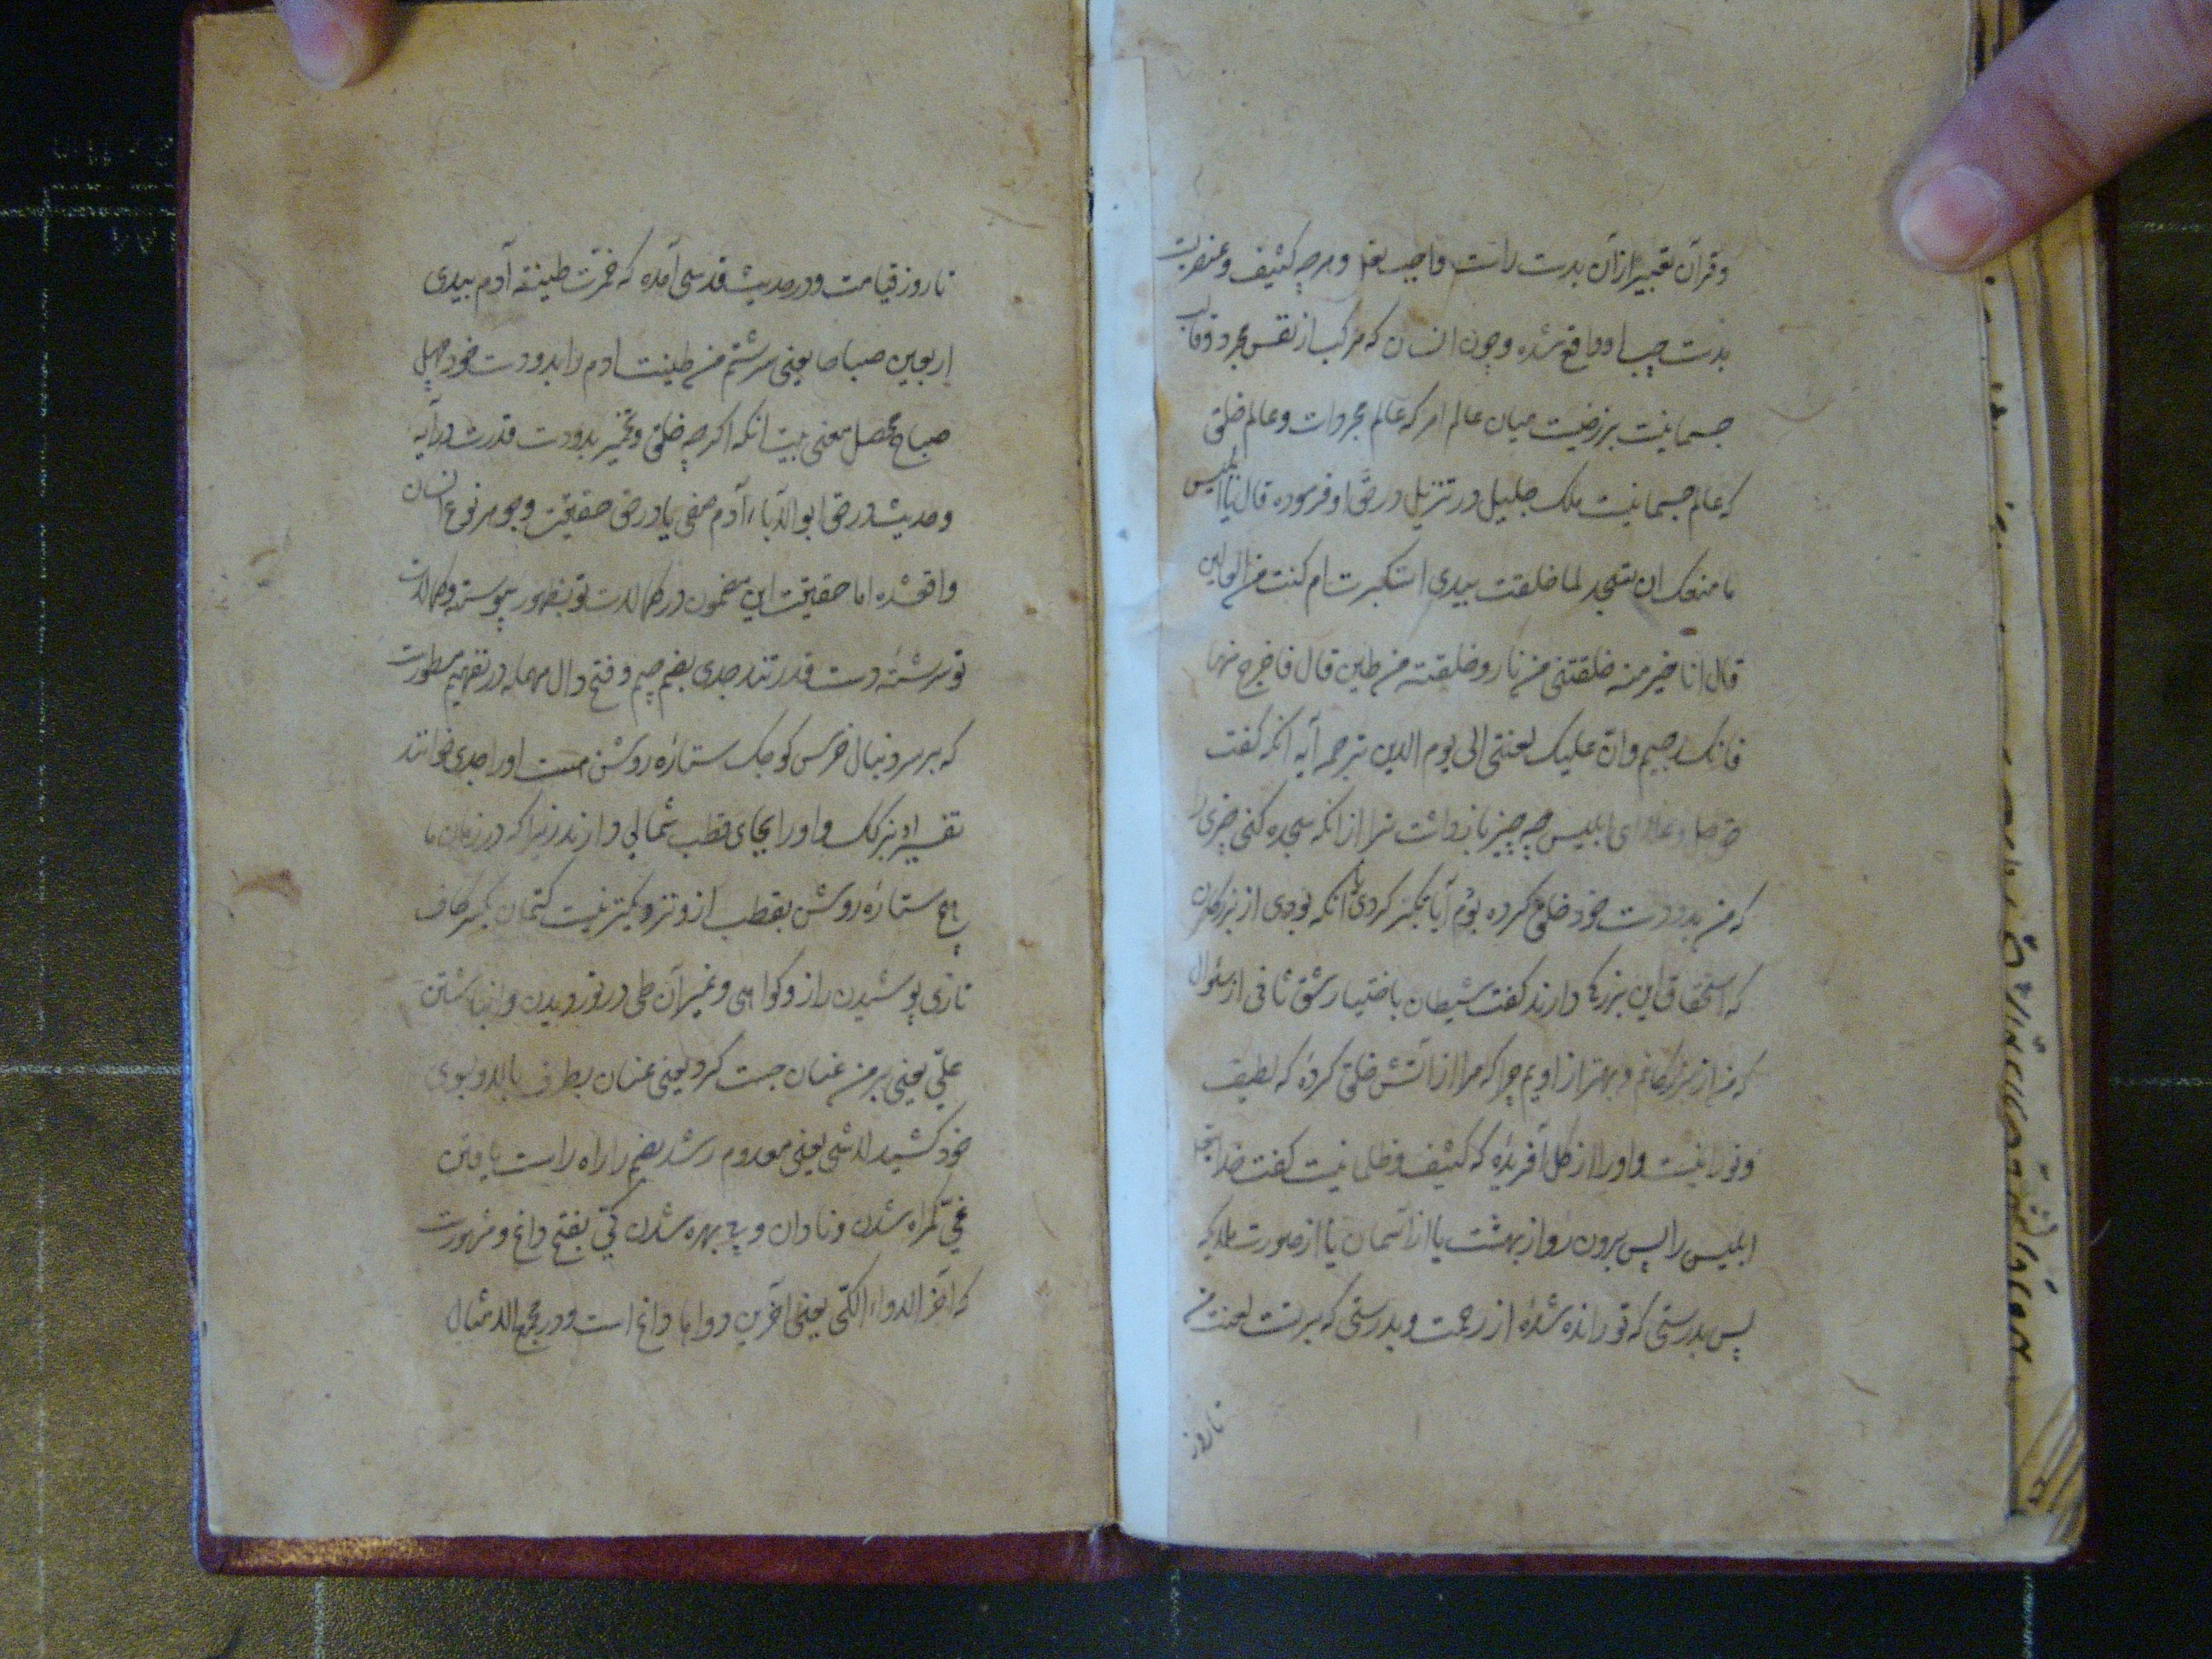 وقرآن تعبیر ازان بدست راست واجب تعا و هرچه کثیف و عنصریست
بدست چپ او واقع شده و چون انسان که مرکب از نفس مجرد و قالب
جسمانیست برزخیست میان عالم امر که عالم مجردات و عالم خلق
که عالم جسمانیست ملک جلیل در تنزیل در حق او فرموده قال یا ابلیس
ما منعک ان تسجد لما خلقت بیدی استکبرت ام کنت من العالین
قال انا خیر منه خلقتنی من نار و خلقته من طین قال فاخرج منها
فانک رجیم وان علیک لعنتی الی یوم الدین ترجمه آیه آنکه گفت
حق جل و علا ای ابلیس چه چیز باز داشت ترا ازانکه سجده کنی چیزی را
که من بدو دست خود خلق کرده بودم آیا تکبر کردی یا آنکه بودی از بزرگان
که استحقاق این بزرگی دارند گفت شیطان باختیار شق ثانی از سئوال
که من از بزرگانم و بهتر از اویم چرا که مرا از آتش خلق کردۀ که لطیف
و نورانیست و او را از گل آفریدۀ که کثیف و ظلمانیست گفت خدا
ابلیس را پس برون رو از بهشت یا از آسمان یا از صورت ملکیه
پس بدرستی که تو رانده شدۀ از رحمت و بدرستی که برتست لعنت من
تا روز
تا روز قیامت و در حدیث قدسی آمده که خمرت طینة آدم بیدی
اربعین صباحا یعنی سرشتم من طینت آدم را بدو دست خود چهل
صباح محصل معنی بیت آنکه اگرچه خلق و تخمیر بدو دست قدرت در آیه
و حدیث در حق ابوالآباء آدم صفی یا در حق حقیقت و جوهر نوع انسان
واقعشده اما حقیقت این مضمون در کمالات تو بظهور پیوسته و کمالات
تو سرشتۀ دست قدرتند جدی بضم جیم و فتح دال مهمله در تفهیم مسطورست
که بر سر دنبال خرس کوچک ستارۀ روشن هست او را جدی خوانند
تفسیر او بزرگک و او را بجای قطب شمالی دارند زیرا که در زمان ما
هیچ ستارۀ روشن بقطب ازو نزدیکتر نیست کتمان بکسر کاف
تازی پوشیدن راز و گواهی و غیر آن طی در نوردیدن و انباشتن
علیّ یعنی بر من عنان جست کرد یعنی عنان بطرف بالا و بسوی
خود کشید لاشی یعنی معدوم رشد بضم را راه راست یافتن
غیّ گمراه شدن و نادان و بی بهره شدن کیّ بفتح داغ و مشهورست
که آخر الدواء الکیّ یعنی آخرین دواها داغ است و در مجمع الامثال